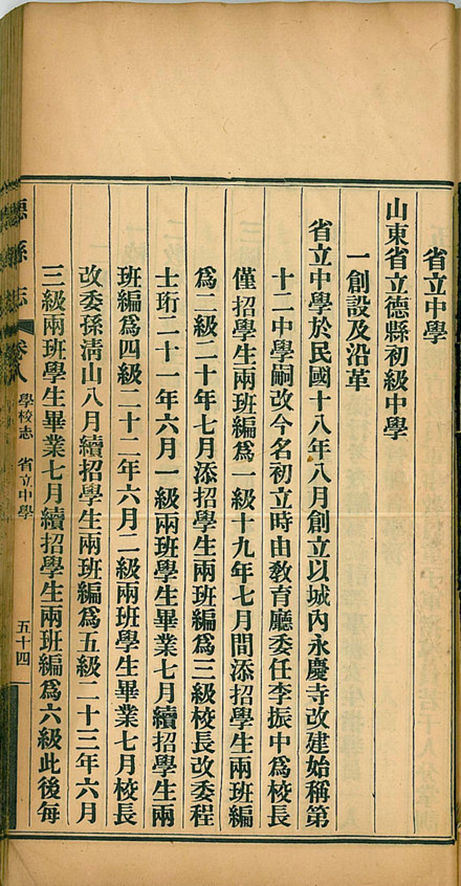 省立中學
山東省立德縣初級中學
一創設及沿革
省立中學於民國十八年八月創立以城內永慶寺改建始稱第
十二中學嗣改今名初立時由敎育廳委任李振中爲校長
僅招學生兩班編爲一級十九年七月間添招學生兩班編
爲二級二十年七月添招學生兩班編爲三級校長改委程
士珩二十一年六月一級兩班學生畢業七月續招學生兩
班編爲四級二十二年六月二級兩班學生畢業七月校長
改委孫淸山八月續招學生兩班編爲五級二十三年六月
三級兩班學生畢業七月續招學生兩班編爲六級此後每
德縣志 卷八 學校志 省立中學 五十四